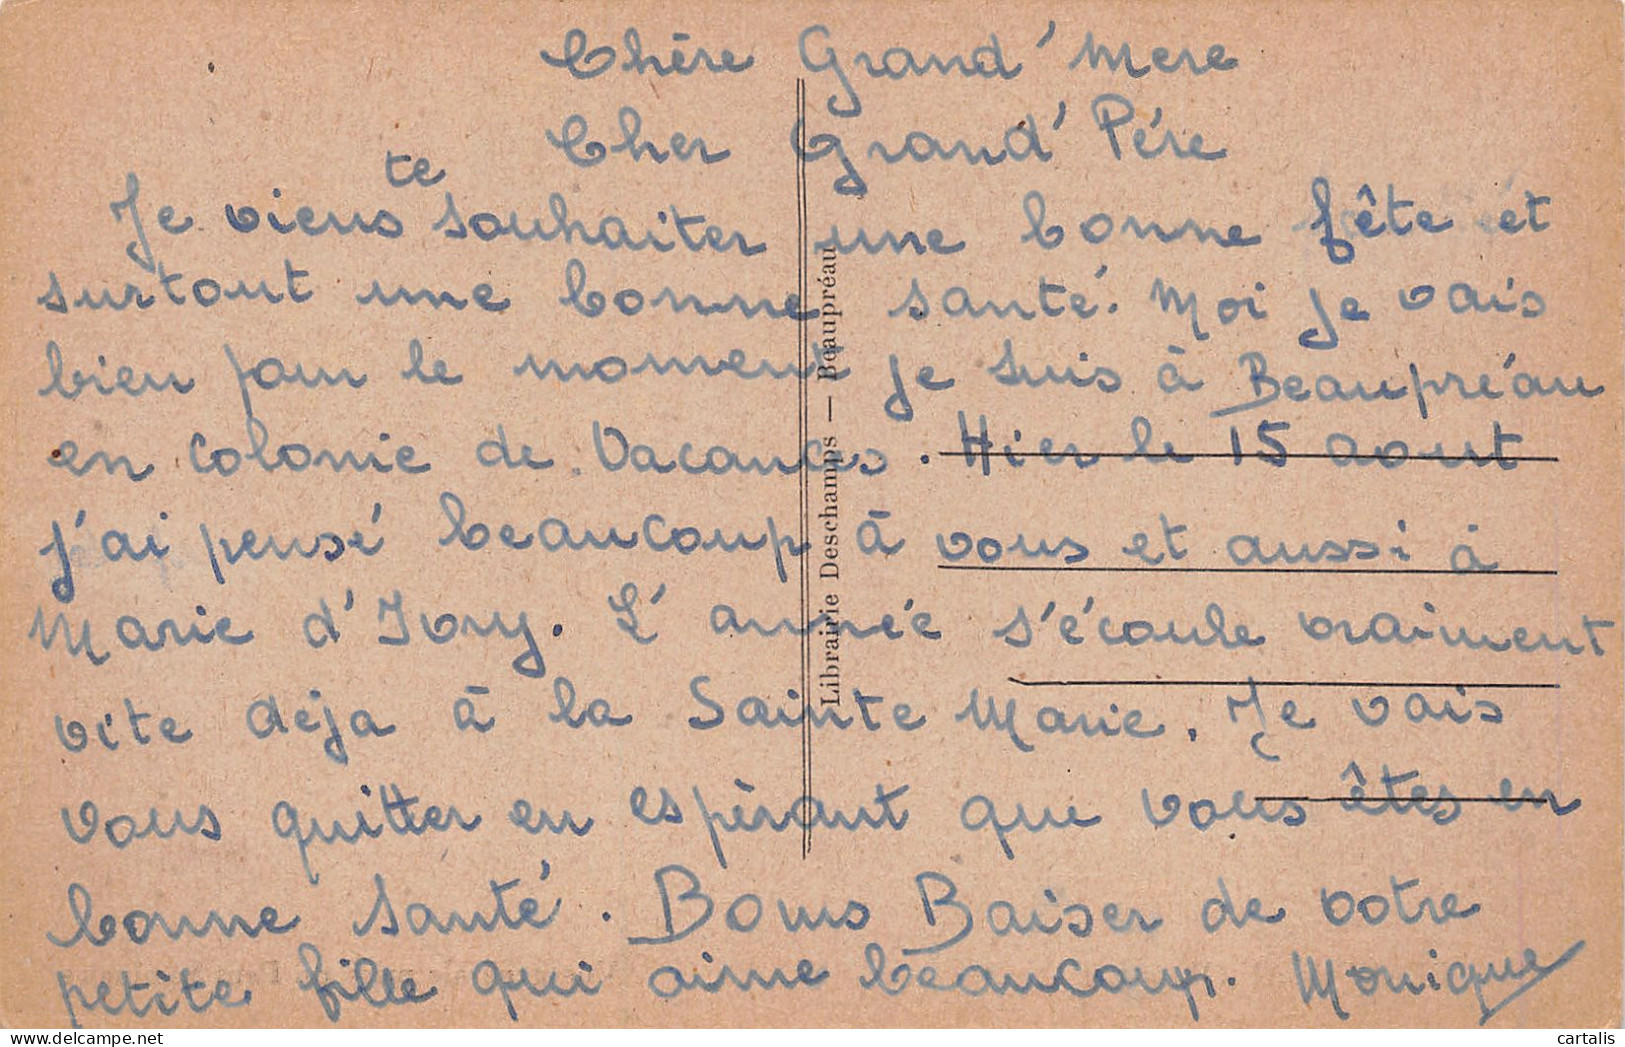 Chère Grand' Mere
Cher Grand' Père
te
Je viens souhaiter une bonne fête et
surtout une bonne santé. Moi je vais
bien pour le moment je suis à Beaupréau
en colonie de Vacances. Hier le 15 aout
j'ai pensé beaucoup à vous et aussi à
Marie d'Ivry. L'année s'écoule vraiment
vite deja à la Sainte Marie. Je vais
vous quitter en espèrant que vous êtes en
bonne santé. Bons Baiser de votre
petite fille qui aime beaucoup. Monique
Librairie Deschamps — Beaupréau
cartalis